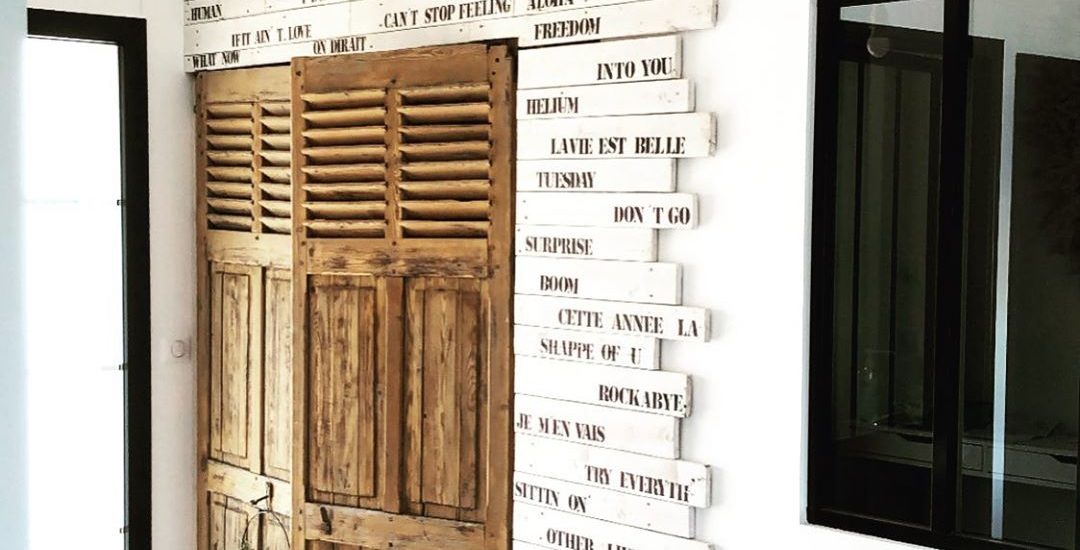 HUMAN
CAN'T STOP FEELING
ALOHA
IF IT AIN'T LOVE
FREEDOM
WHAT NOW
ON DIRAIT
INTO YOU
HELIUM
LAVIE EST BELLE
TUESDAY
DON'T GO
SURPRISE
BOOM
CETTE ANNEE LA
SHAPPE OF U
ROCKABYE
JE M'EN VAIS
TRY EVERYTH
SITTIN ON
OTHER